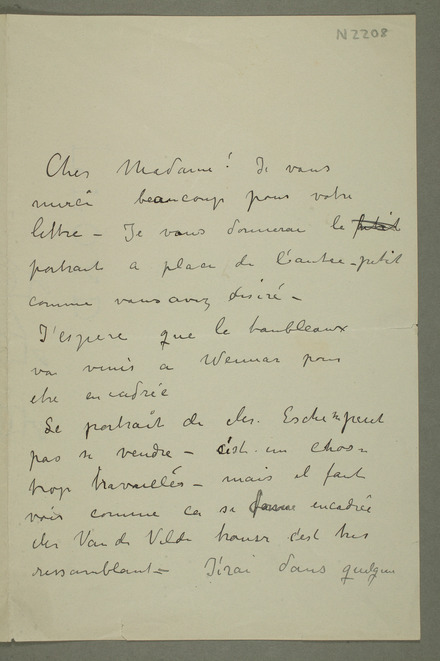 N 2208
Cher Madame! Je vous
merci beaucoup pour votre
lettre – Je vous donnerai le petit
portrait a place de l'autre – petit
comme vous avez desiré –
J'espere que le taubleaux
va venis a Weimar pour
etre encadrée
Le portrait de Mr. Esche n peut
pas se vendre – c'est un chose
trop travaillés – mais il faut
voir comme ca se encadrée
Mr Van de Velde trouve c'est tres
ressamblant – J'irai dans quelques